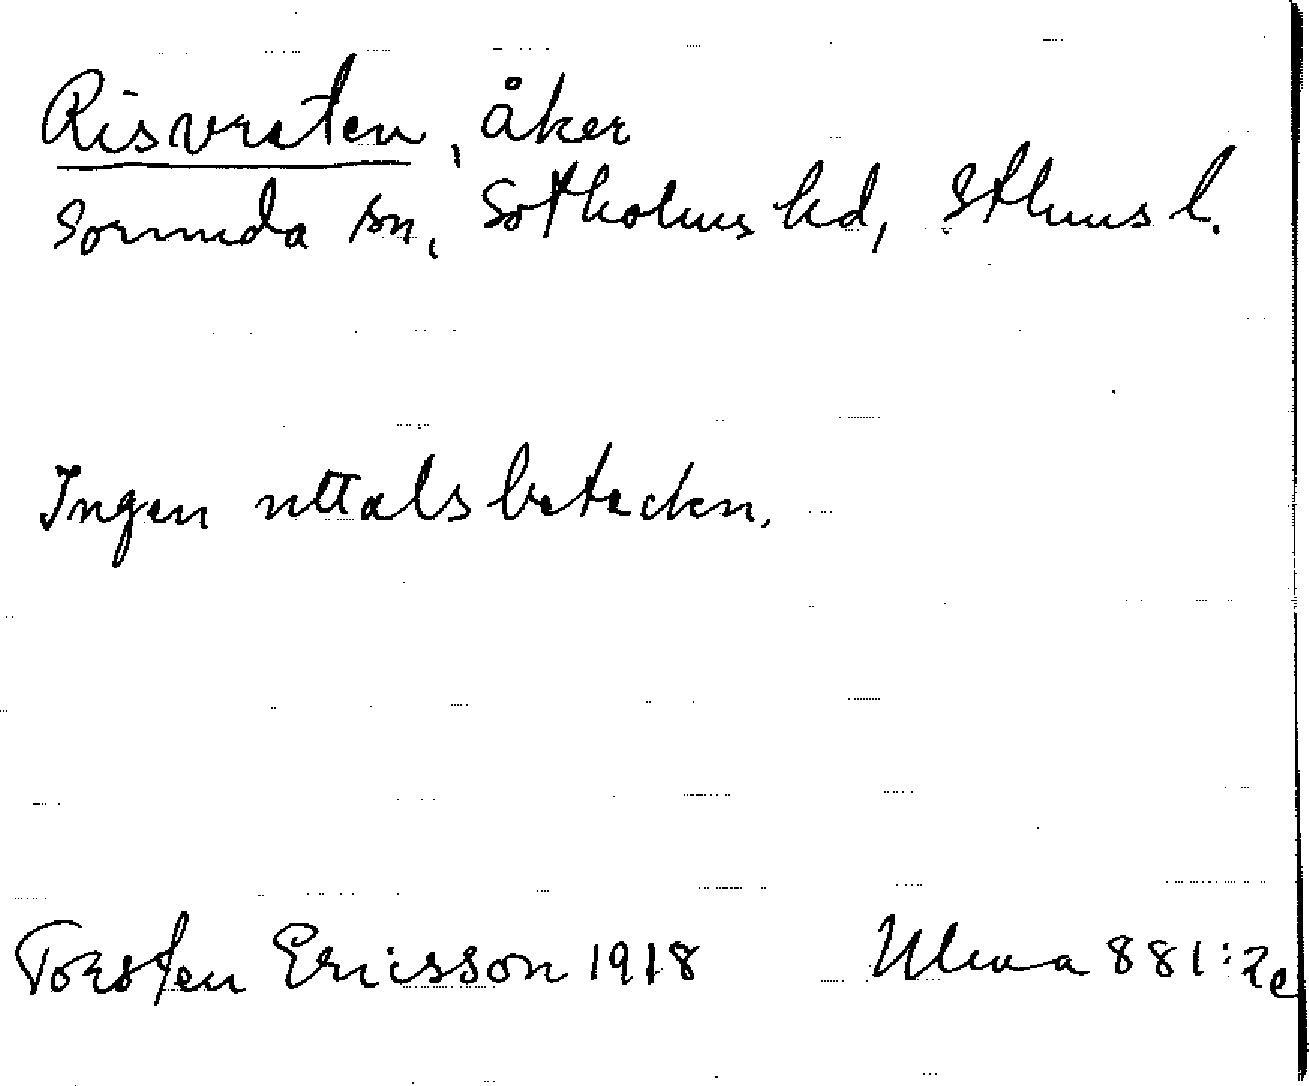 Risvreten, åker
Sorunda sn, Sotholms hd, Sthms l.
Ingen uttalsbeteckn.
Torsten Ericsson 1918 Ulma 881:2c